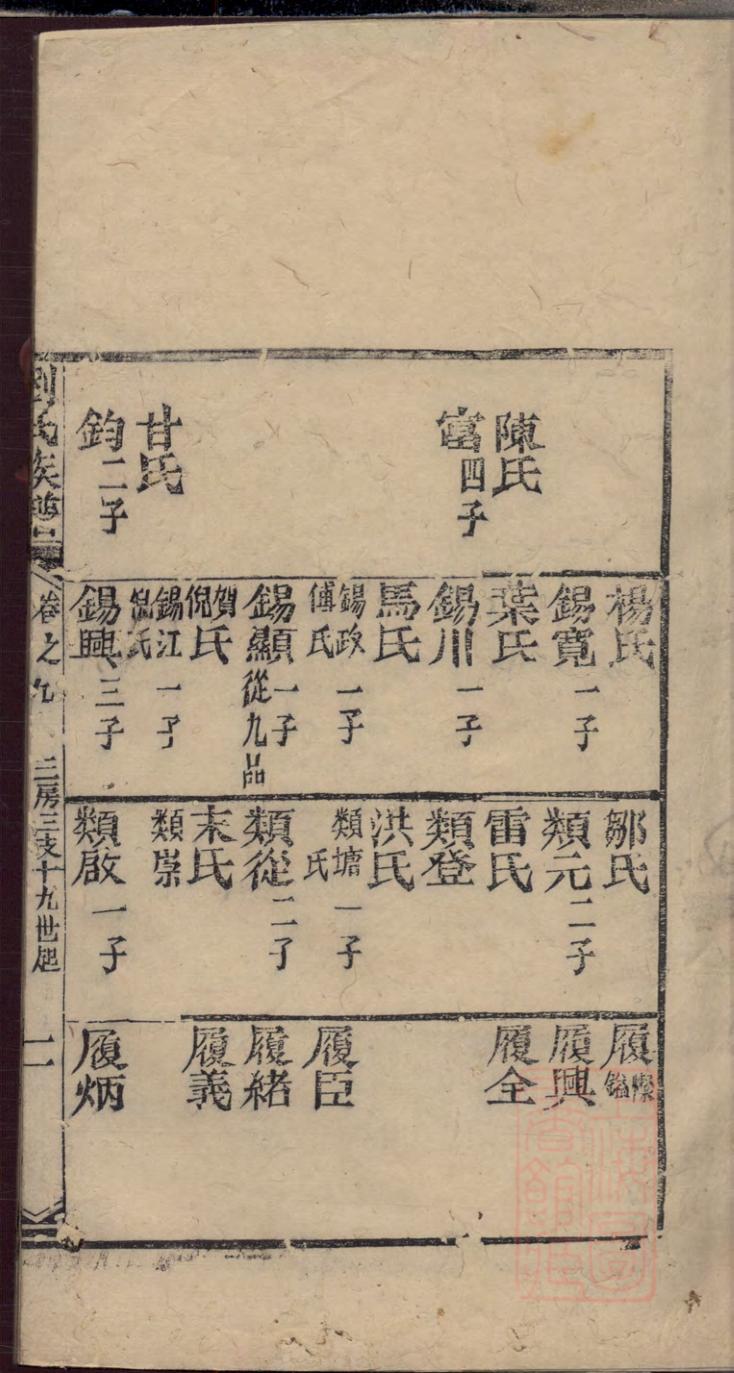 陳氏
富四子
甘氏
鈞二子
楊氏
錫寬一子
葉氏
錫川一子
馬氏
錫政一子
傅氏
錫顯一子從九品
賀氏
倪氏
錫江一子
倪氏
錫興三子
鄒氏
類元二子
雷氏
類登
洪氏
類塘一子
氏
類從二子
末氏
類崇
類啟一子
履
履興
履全
履臣
履緒
履義
履炳
劉氏族譜
卷之九
三房三支十九世起
二